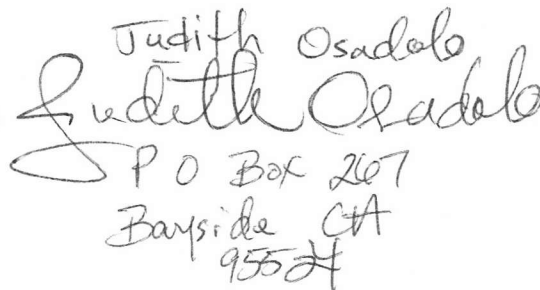 Judith Osadolo
Judith Osadolo
P O Box 267
Bayside CA
95524